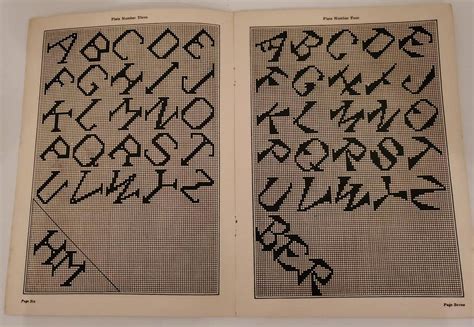 Plate Number Three
A B C D E
F G H I J
K L M N O
P Q R S T
U V W Y Z
HM
Page Six
Plate Number Four
A B C D E
F G H I J
K L M N O
P Q R S T
U V W Y Z
BER
Page Seven